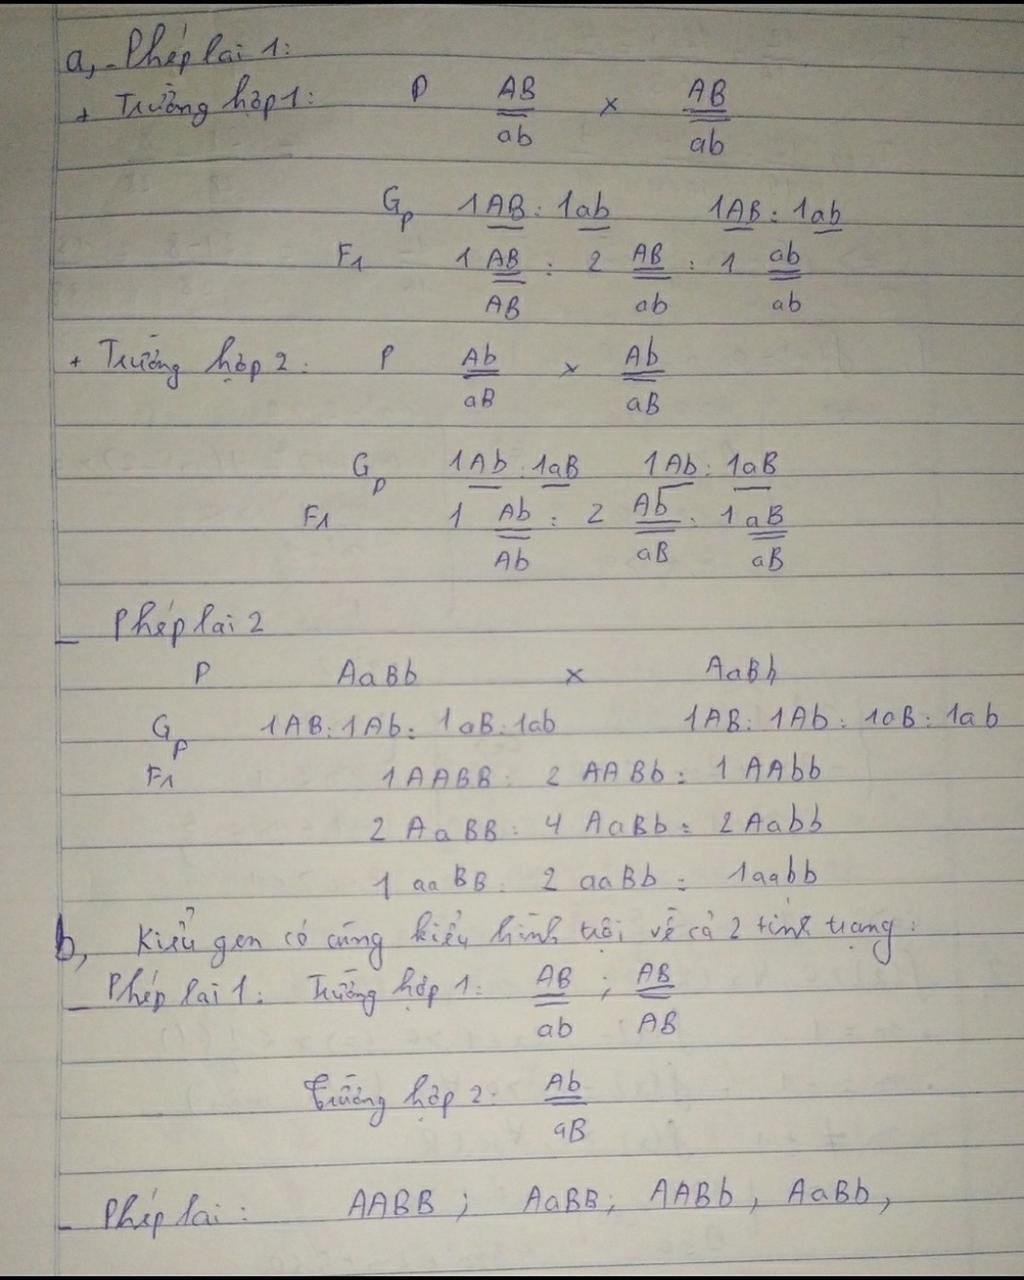 a, - Phép lai 1:
+ Trường hợp 1: P AB/ab x AB/ab
Gp 1AB : 1ab 1AB : 1ab
F1 1 AB/AB : 2 AB/ab : 1 ab/ab
+ Trường hợp 2: P Ab/aB x Ab/aB
Gp 1Ab : 1aB 1Ab : 1aB
F1 1 Ab/Ab : 2 Ab/aB : 1 aB/aB
- Phép lai 2
P AaBb x AaBb
Gp 1AB : 1Ab : 1aB : 1ab 1AB : 1Ab : 1aB : 1ab
F1 1AABB : 2 AABb : 1 AAbb
2 AaBB : 4 AaBb : 2 Aabb
1 aaBB : 2 aaBb : 1aabb
b, Kiểu gen có cùng kiểu hình trội về cả 2 tính trạng:
- Phép lai 1: Trường hợp 1: AB/ab ; AB/AB
Trường hợp 2: Ab/aB
- Phép lai: AABB ; AaBB ; AABb , AaBb ,